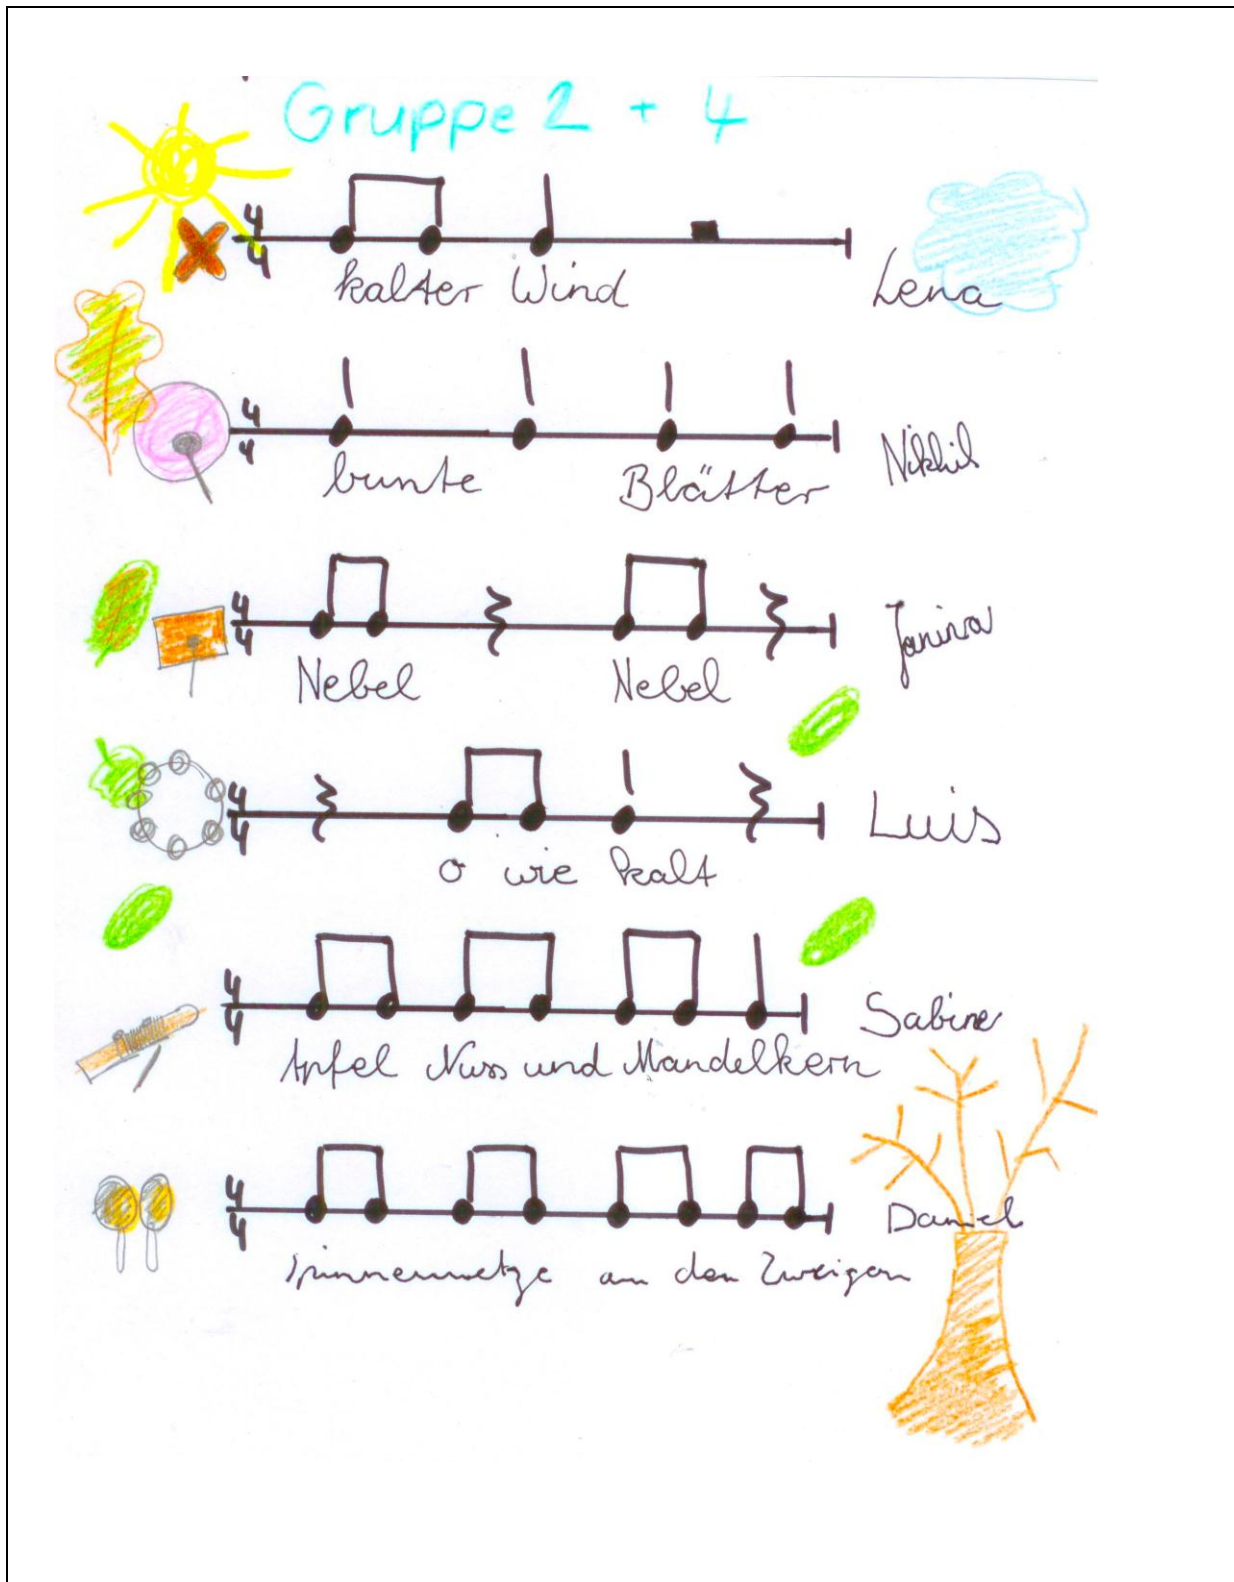 Gruppe 2 + 4
4/4
kalter Wind Lena
4/4
bunte Blätter Nikhil
4/4
Nebel Nebel Janina
4/4
o wie kalt Luis
4/4
Apfel Nuss und Mandelkern Sabine
4/4
Spinnennetze an den Zweigen Daniel